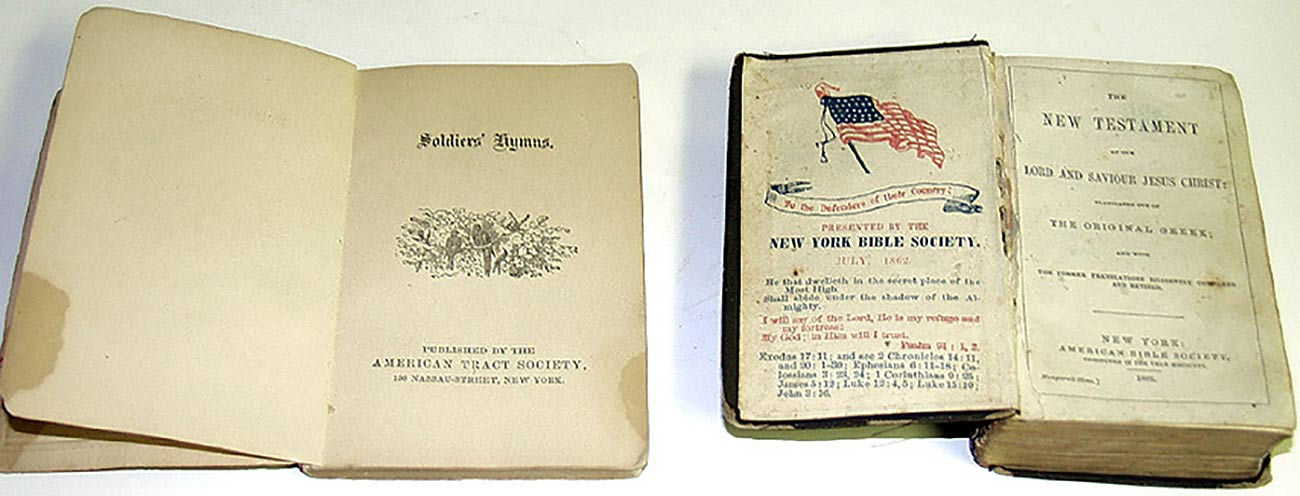 Soldiers' Hymns.
PUBLISHED BY THE
AMERICAN TRACT SOCIETY,
150 NASSAU-STREET, NEW YORK.
To the Defenders of their Country;
PRESENTED BY THE
NEW YORK BIBLE SOCIETY.
JULY, 1862.
He that dwelleth in the secret place of the
Most High
Shall abide under the shadow of the Al-
mighty.
I will say of the Lord, He is my refuge and
my fortress:
My God; in Him will I trust.
Psalm 91: 1, 2.
Exodus 17:11; and see 2 Chronicles 14:11,
and 20: 1-30; Ephesians 6:11-18; Co-
lossians 3: 23, 24; 1 Corinthians 9: 25;
James 5:12; Luke 12:4, 5; Luke 15:10;
John 3:16.
THE
NEW TESTAMENT
OF OUR
LORD AND SAVIOUR JESUS CHRIST:
TRANSLATED OUT OF
THE ORIGINAL GREEK;
AND WITH
THE FORMER TRANSLATIONS DILIGENTLY COMPARED
AND REVISED.
NEW YORK:
AMERICAN BIBLE SOCIETY,
IN THE YEAR